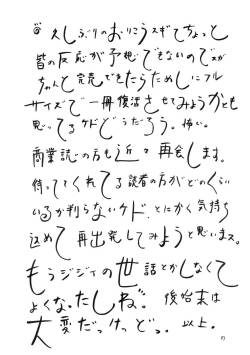 @ 久しぶりのおりこうスギてちょっと
皆の反応が予想できないのでスが
ちゃんと完売できたらためしにフル
サイズで一冊復活させてみようかとも
思ってるケドどうだろう。怖い。
商業誌の方も近々再会します。
待っててくれてる読者の方がどのくらい
いるか判らないケド、とにかく気持ち
込めて再出発してみようと思いまス。
もうジジイの世話とかしなくて
よくなったしね。後始末は
大変だっけっどっ。以上。